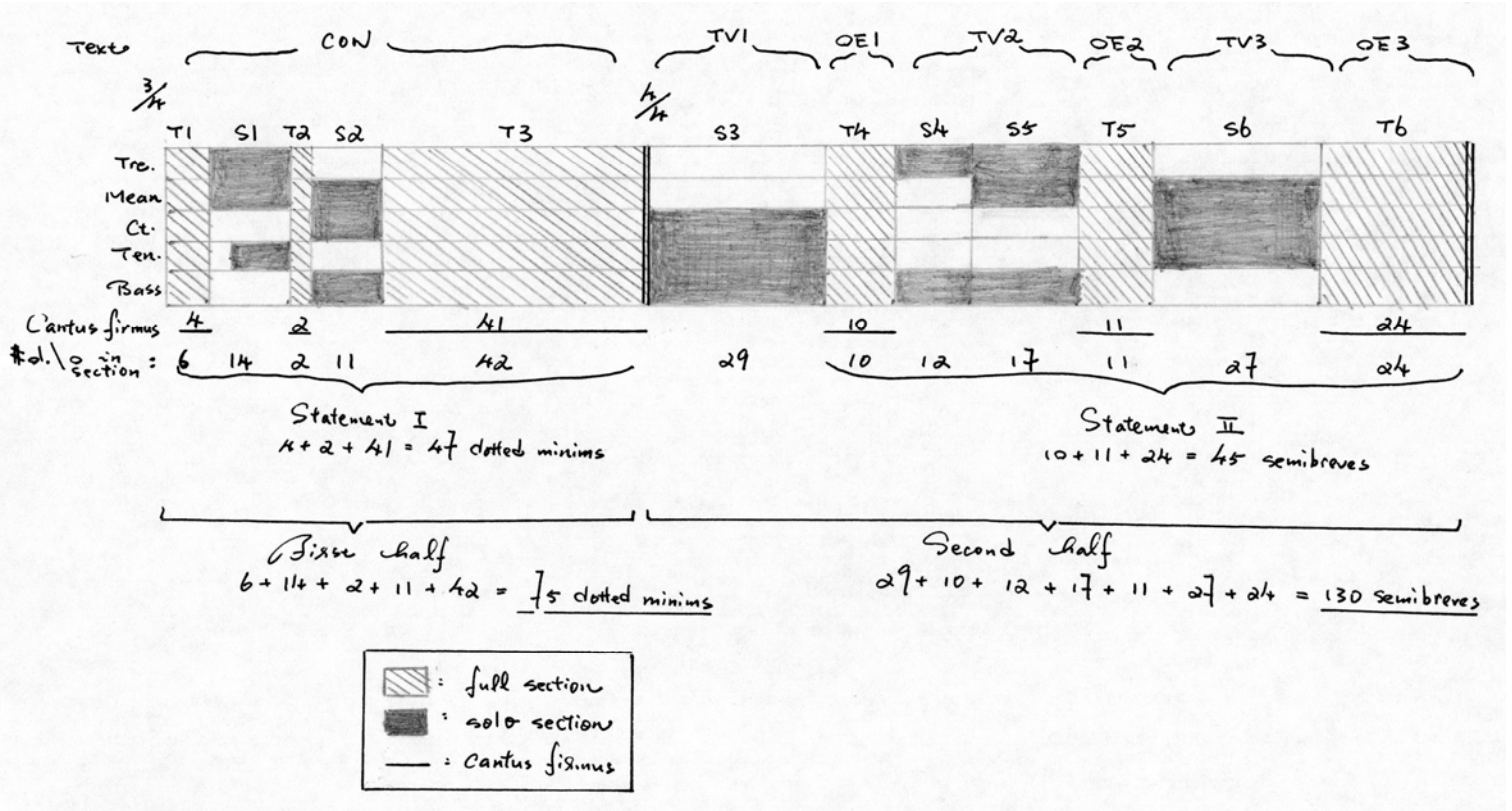 Text CON TV1 OE1 TV2 OE2 TV3 OE3
3/4 4/4
T1 S1 T2 S2 T3 S3 T4 S4 S5 T5 S6 T6
Tre.
Mean
Ct.
Ten.
Bass
Cantus firmus 4 2 41 10 11 24
# d. \ o in section : 6 14 2 11 42 29 10 12 17 11 27 24
Statement I Statement II
4 + 2 + 41 = 47 dotted minims 10 + 11 + 24 = 45 semibreves
First half Second half
6 + 14 + 2 + 11 + 42 = 75 dotted minims 29 + 10 + 12 + 17 + 11 + 27 + 24 = 130 semibreves
: full section
: solo section
: cantus firmus